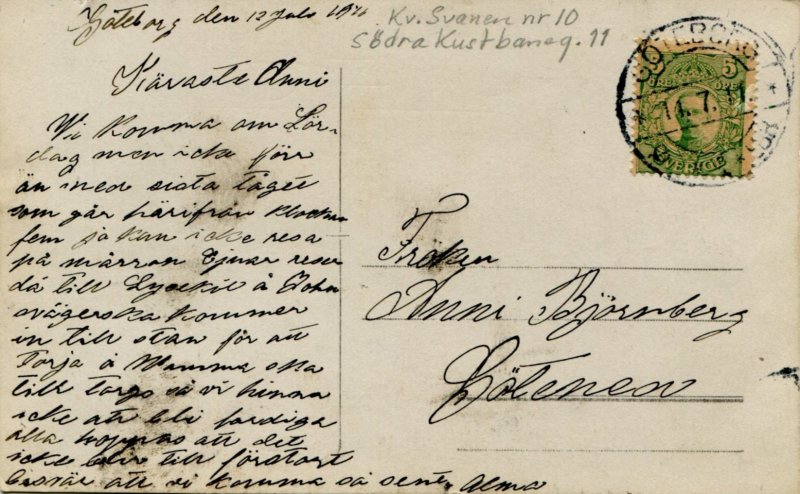 Göteborg den 12 Juli 1911
Kv. Svanen nr 10
Södra Kustbaneg. 11
GÖTEBORG
14.7.11
5 5
ÖRE
SVERIGE
Käraste Anni
Vi komma om Lör-
dag men icke förr
än med sista tåget
som går härifrån klockan
fem ja kan icke resa
på mårron Ejnar reser
då till Lysekil å John
svägerska kommer
in till stan för att
Torja å Mamma ska
till torgs så vi hinna
icke att bli färdiga
alla hoppas att det
icke blir till förstort
besvär att vi komma så sent. Alma
Fröken
Anni Björnberg
Götenen